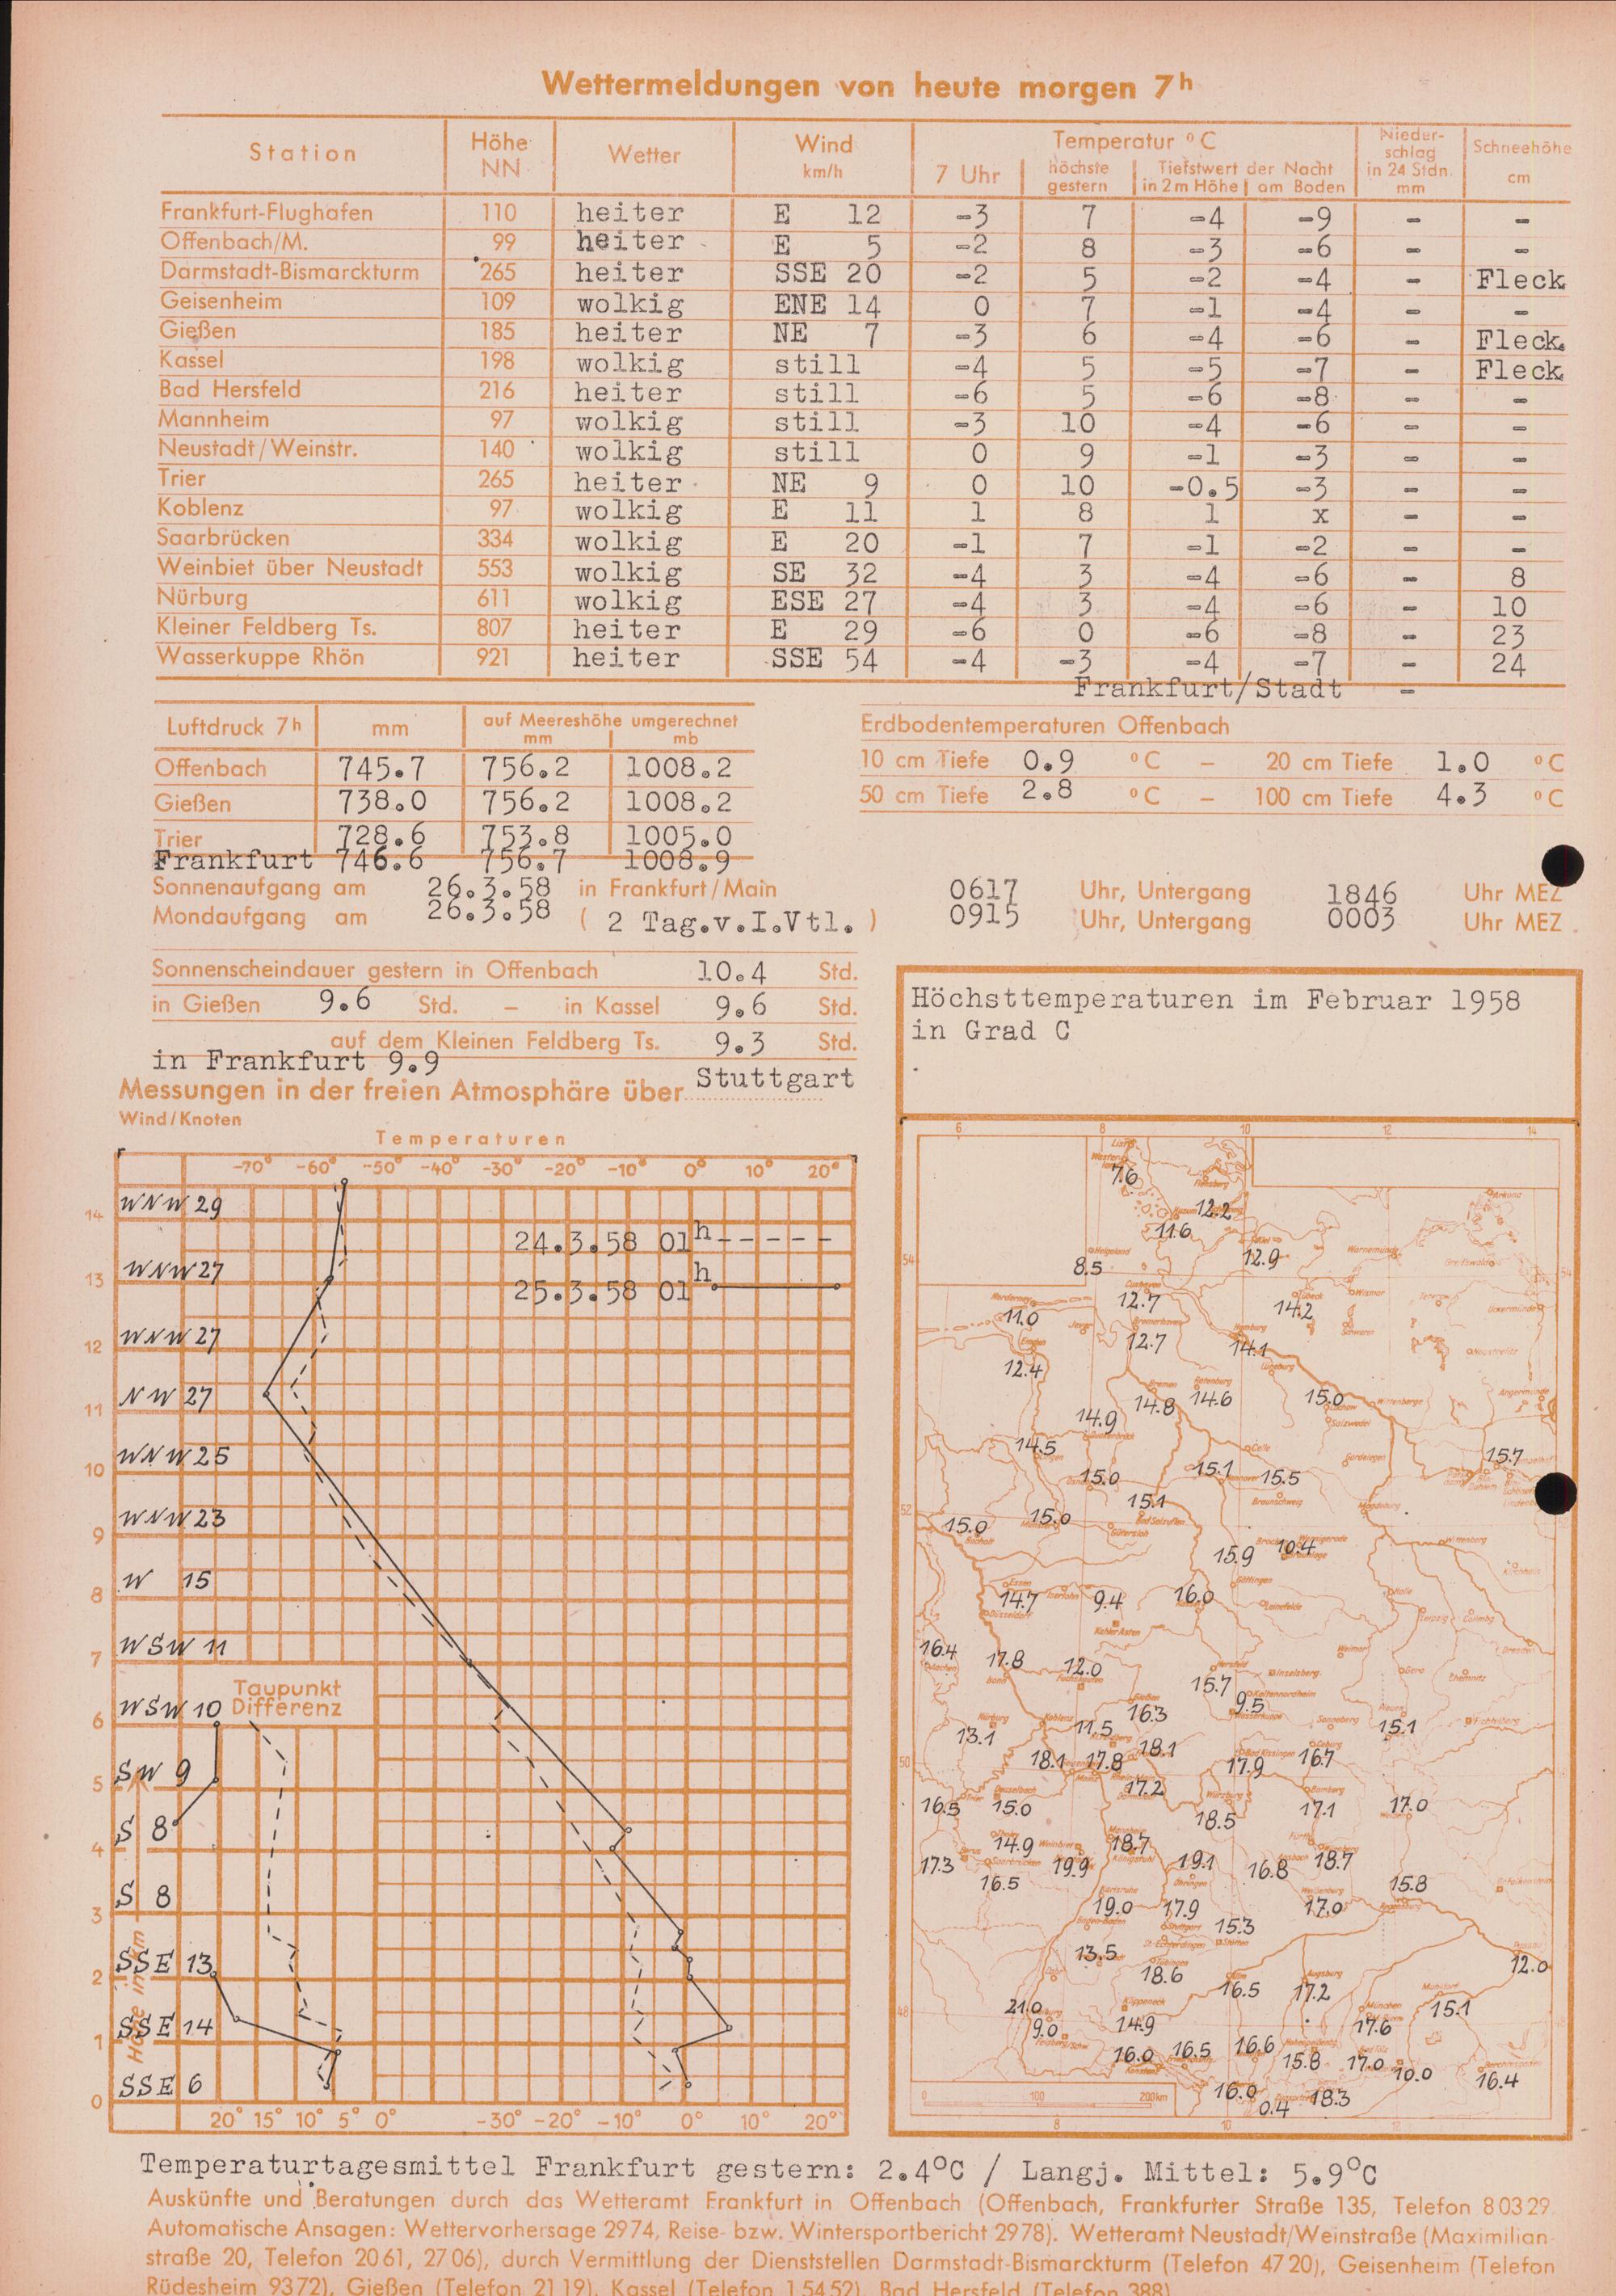 Wettermeldungen von heute morgen 7h
Station Höhe NN Wetter Wind km/h Temperatur °C Nieder-schlag in 24 Stdn. mm Schneehöhe cm
7 Uhr höchste gestern Tiefstwert der Nacht in 2 m Höhe am Boden
Frankfurt-Flughafen 110 heiter E 12 -3 7 -4 -9 - -
Offenbach/M. 99 heiter E 5 -2 8 -3 -6 - -
Darmstadt-Bismarckturm 265 heiter SSE 20 -2 5 -2 -4 - Fleck
Geisenheim 109 wolkig ENE 14 0 7 -1 -4 - -
Gießen 185 heiter NE 7 -3 6 -4 -6 - Fleck.
Kassel 198 wolkig still -4 5 -5 -7 - Fleck
Bad Hersfeld 216 heiter still -6 5 -6 -8 - -
Mannheim 97 wolkig still -3 10 -4 -6 - -
Neustadt/Weinstr. 140 wolkig still 0 9 -1 -3 - -
Trier 265 heiter NE 9 0 10 -0.5 -3 - -
Koblenz 97 wolkig E 11 1 8 1 x - -
Saarbrücken 334 wolkig E 20 -1 7 -1 -2 - -
Weinbiet über Neustadt 553 wolkig SE 32 -4 3 -4 -6 - 8
Nürburg 611 wolkig ESE 27 -4 3 -4 -6 - 10
Kleiner Feldberg Ts. 807 heiter E 29 -6 0 -6 -8 - 23
Wasserkuppe Rhön 921 heiter SSE 54 -4 -3 -4 -7 - 24
Frankfurt/Stadt -
Luftdruck 7h mm auf Meereshöhe umgerechnet mm mb
Offenbach 745.7 756.2 1008.2
Gießen 738.0 756.2 1008.2
Trier 728.6 753.8 1005.0
Frankfurt 746.6 756.7 1008.9
Erdbodentemperaturen Offenbach
10 cm Tiefe 0.9 °C – 20 cm Tiefe 1.0 °C
50 cm Tiefe 2.8 °C – 100 cm Tiefe 4.3 °C
Sonnenaufgang am 26.3.58 in Frankfurt/Main 0617 Uhr, Untergang 1846 Uhr MEZ
Mondaufgang am 26.3.58 ( 2 Tag.v.I.Vtl. ) 0915 Uhr, Untergang 0003 Uhr MEZ
Sonnenscheindauer gestern in Offenbach 10.4 Std.
in Gießen 9.6 Std. – in Kassel 9.6 Std.
auf dem Kleinen Feldberg Ts. 9.3 Std.
in Frankfurt 9.9
Messungen in der freien Atmosphäre über Stuttgart
Wind/Knoten
Temperaturen
-70° -60° -50° -40° -30° -20° -10° 0° 10° 20°
WNW 29
14
24.3.58 01h
WNW 27
13
25.3.58 01h
WNW 27
12
NW 27
11
WNW 25
10
WNW 23
9
W 15
8
WSW 11
7
Taupunkt
WSW 10 Differenz
6
SW 9
5
S 8
4
S 8
3
SSE 13
2
SSE 14
1
SSE 6
0
Höhe in km
20° 15° 10° 5° 0° -30° -20° -10° 0° 10° 20°
Höchsttemperaturen im Februar 1958
in Grad C
6 8 10 12 14
7.6
12.2
11.6
54
8.5 12.9
12.7 14.2
11.0
12.7 14.1
12.4
14.8 14.6 15.0
14.9
14.5 15.7
15.0 15.1 15.5
52
15.0 15.0 15.1
15.9 10.4
14.7 9.4 16.0
16.4 17.8 12.0
15.7 9.5
13.1 11.5 16.3 15.1
50
18.1 17.8 18.1 17.9 16.7
17.2
16.5 15.0 18.5 17.1 17.0
14.9 18.7
17.3 19.9 19.1 16.8 18.7
16.5 15.8
19.0 17.9 17.0
15.3
13.5 12.0
18.6 16.5 17.2
48
21.0 15.1
9.0 14.9 17.6
16.0 16.5 16.6 15.8 17.0 10.0 16.4
16.0 0.4 18.3
0 100 200km
8 10 12
Temperaturtagesmittel Frankfurt gestern: 2.4°C / Langj. Mittel: 5.9°C
Auskünfte und Beratungen durch das Wetteramt Frankfurt in Offenbach (Offenbach, Frankfurter Straße 135, Telefon 80329.
Automatische Ansagen: Wettervorhersage 2974, Reise- bzw. Wintersportbericht 2978). Wetteramt Neustadt/Weinstraße (Maximilian-
straße 20, Telefon 2061, 2706), durch Vermittlung der Dienststellen Darmstadt-Bismarckturm (Telefon 4720), Geisenheim (Telefon
Rüdesheim 9372), Gießen (Telefon 2119), Kassel (Telefon 15452), Bad Hersfeld (Telefon 388)